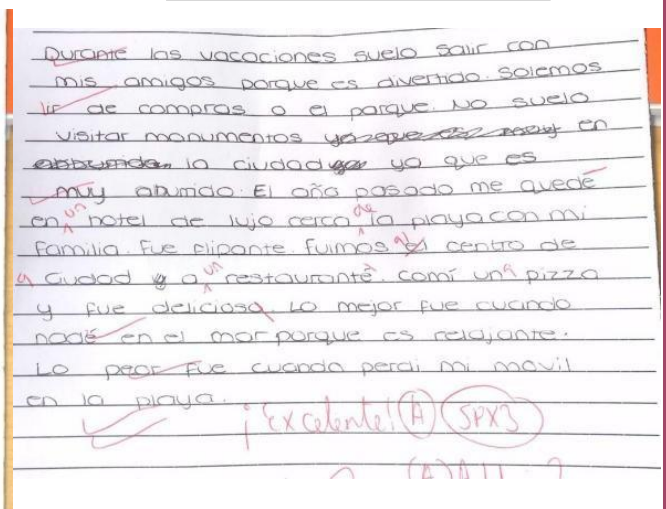 Durante las vacaciones suelo salir con
mis amigos porque es divertido. Solemos
ir de compras o el parque. No suelo
visitar monumentos en
la ciudad ya que es
muy aburrido. El año pasado me quedé
en un hotel de lujo cerca de la playa con mi
familia. Fue flipante. Fuimos al centro de
a ciudad y a un restaurante. Comí una pizza
y fue deliciosa. Lo mejor fue cuando
nadé en el mar porque es relajante.
Lo peor fue cuando perdi mi movil
en la playa.
¡Excelente! A SPX3